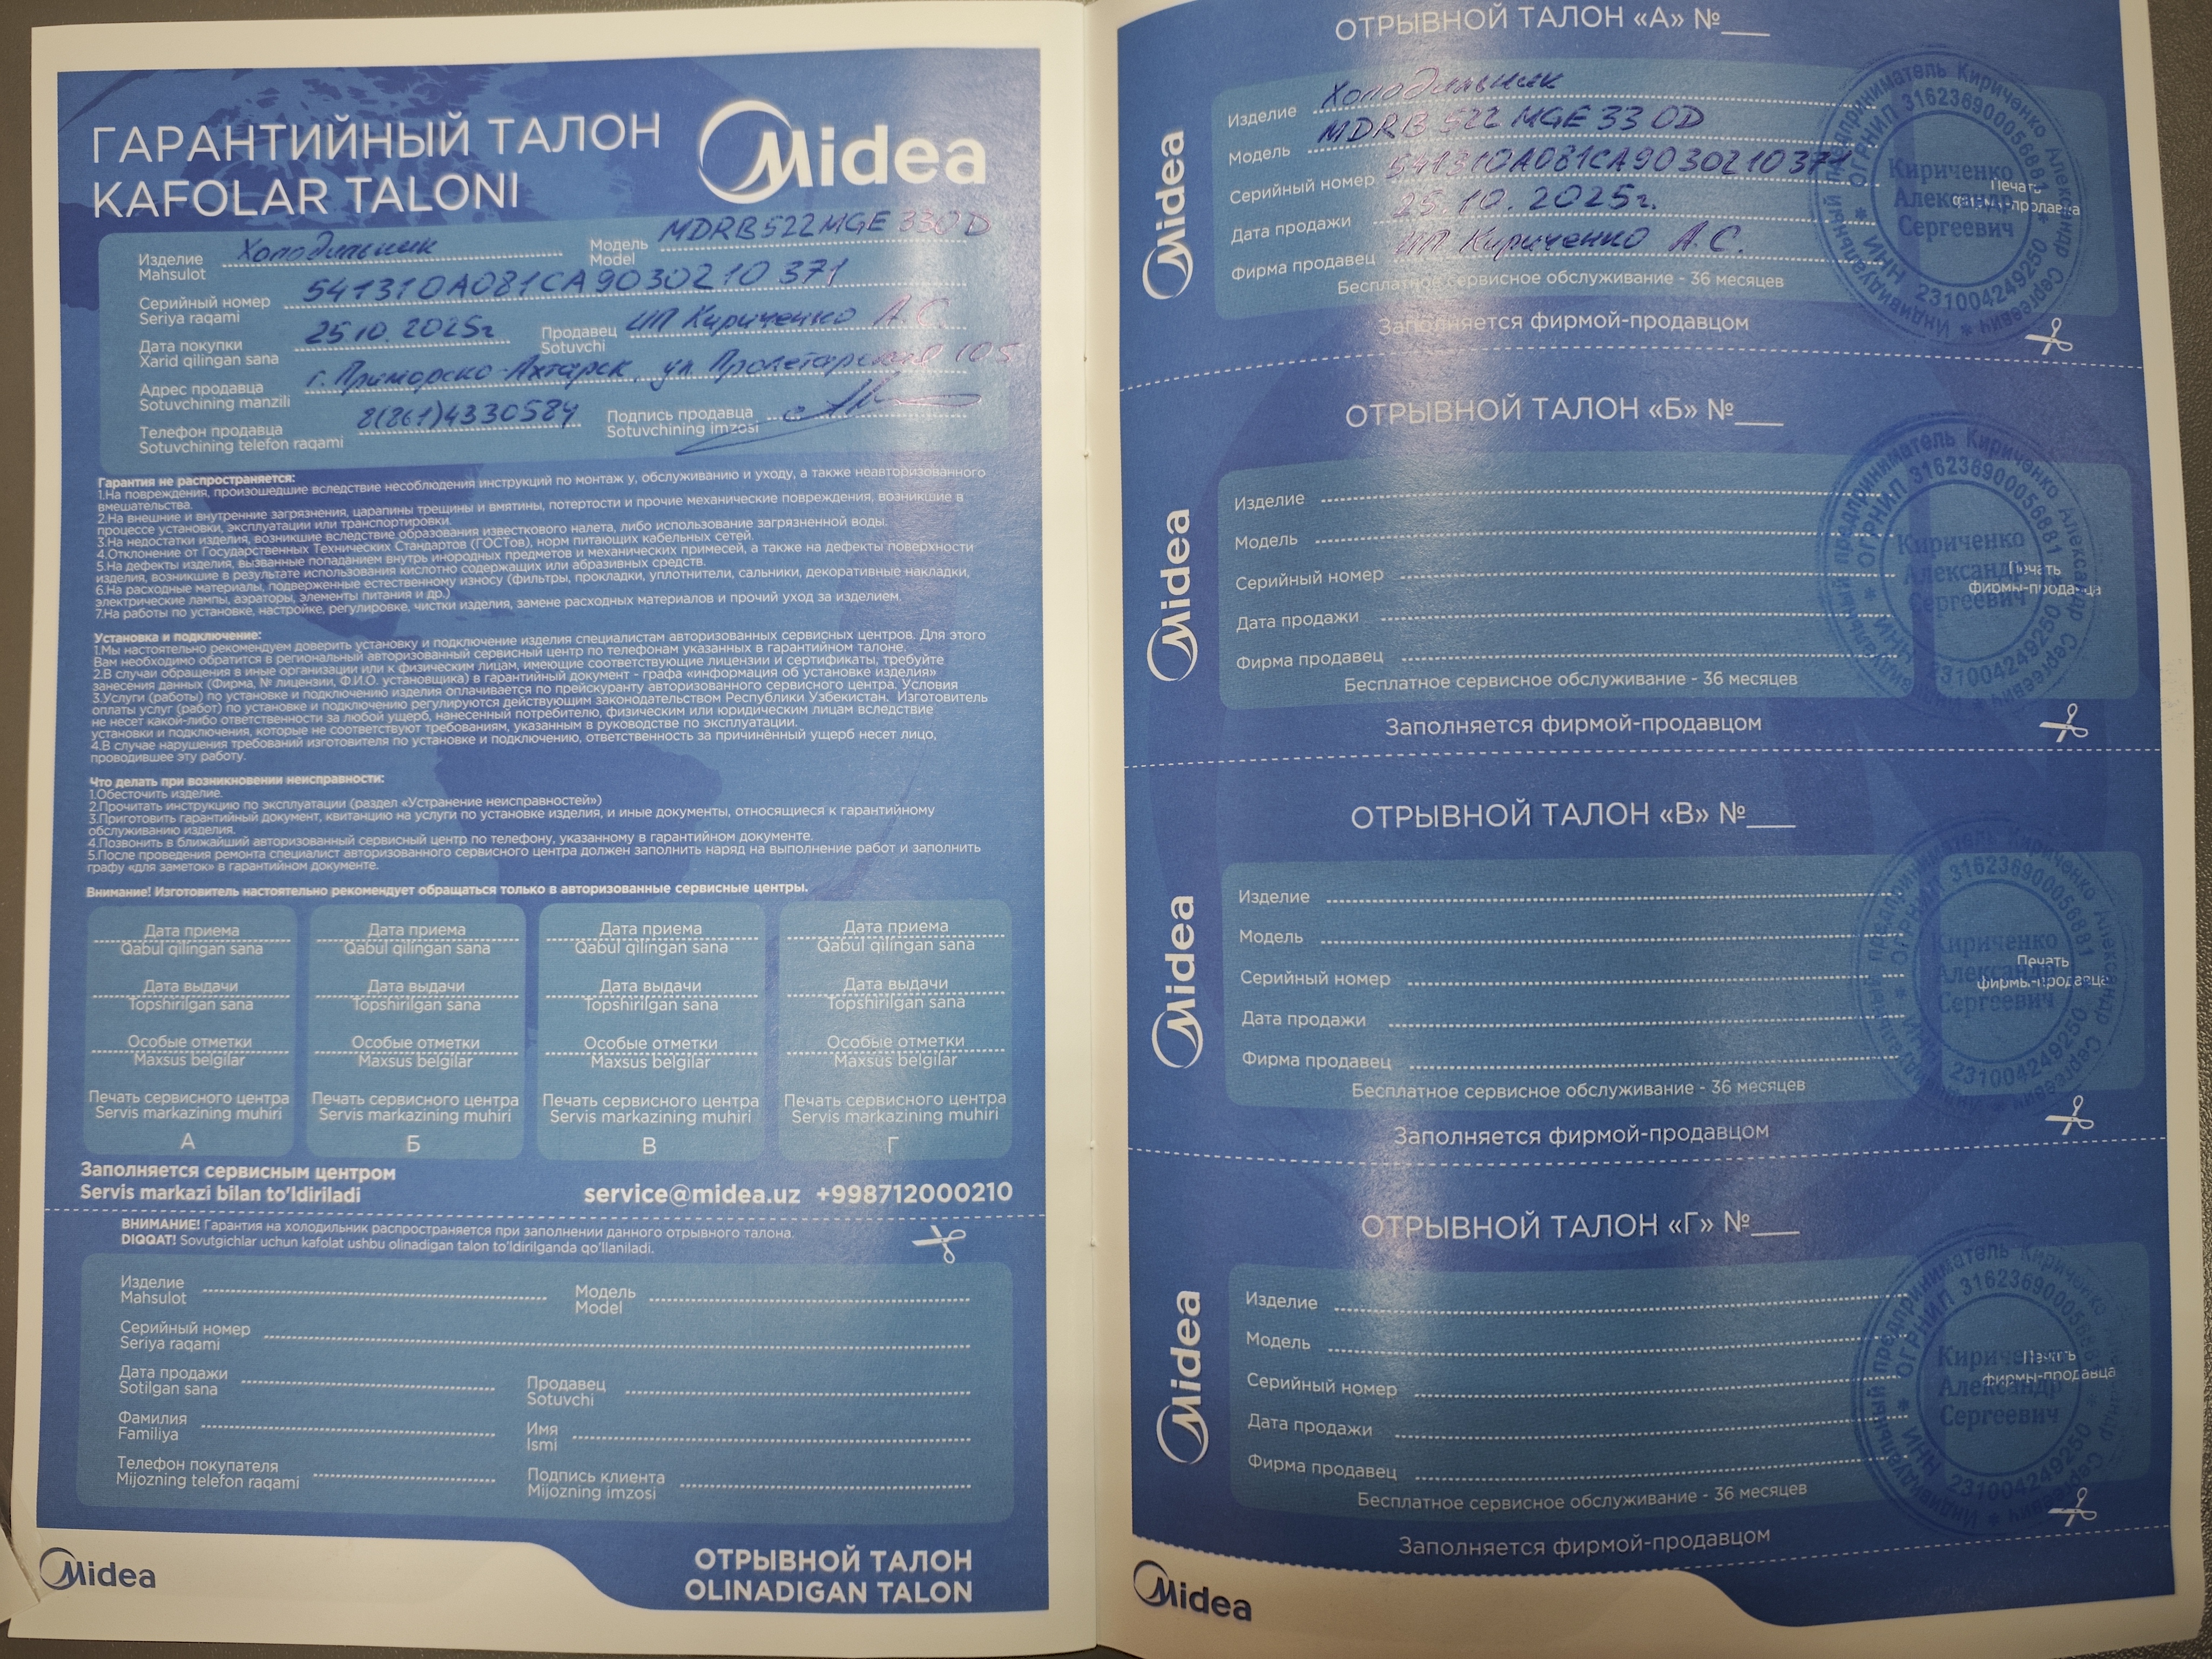 ГАРАНТИЙНЫЙ ТАЛОН
KAFOLAR TALONI
Midea
Изделие Холодильник Модель MDRB522MGE33OD
Mahsulot Model
Серийный номер 541310A081CA9030210371
Seriya raqami
Дата покупки 25.10.2025г Продавец ИП Кириченко А.С.
Xarid qilingan sana Sotuvchi
Адрес продавца г. Приморско-Ахтарск, ул Пролетарская 105
Sotuvchining manzili
Телефон продавца 8(861)4330584 Подпись продавца
Sotuvchining telefon raqami Sotuvchining imzosi
Гарантия не распространяется:
1.На повреждения, произошедшие вследствие несоблюдения инструкций по монтаж у, обслуживанию и уходу, а также неавторизованного
вмешательства.
2.На внешние и внутренние загрязнения, царапины трещины и вмятины, потертости и прочие механические повреждения, возникшие в
процессе установки, эксплуатации или транспортировки.
3.На недостатки изделия, возникшие вследствие образования известкового налета, либо использование загрязненной воды.
4.Отклонение от Государственных Технических Стандартов (ГОСТов), норм питающих кабельных сетей.
5.На дефекты изделия, вызванные попаданием внутрь инородных предметов и механических примесей, а также на дефекты поверхности
изделия, возникшие в результате использования кислотно содержащих или абразивных средств.
6.На расходные материалы, подверженные естественному износу (фильтры, прокладки, уплотнители, сальники, декоративные накладки,
электрические лампы, аэраторы, элементы питания и др.)
7.На работы по установке, настройке, регулировке, чистки изделия, замене расходных материалов и прочий уход за изделием.
Установка и подключение:
1.Мы настоятельно рекомендуем доверить установку и подключение изделия специалистам авторизованных сервисных центров. Для этого
Вам необходимо обратится в региональный авторизованный сервисный центр по телефонам указанных в гарантийном талоне.
2.В случаи обращения в иные организации или к физическим лицам, имеющие соответствующие лицензии и сертификаты, требуйте
занесения данных (Фирма, № лицензии, Ф.И.О. установщика) в гарантийный документ - графа «информация об установке изделия»
3.Услуги (работы) по установке и подключению изделия оплачивается по прейскуранту авторизованного сервисного центра. Условия
оплаты услуг (работ) по установке и подключению регулируются действующим законодательством Республики Узбекистан. Изготовитель
не несет какой-либо ответственности за любой ущерб, нанесенный потребителю, физическим или юридическим лицам вследствие
установки и подключения, которые не соответствуют требованиям, указанным в руководстве по эксплуатации.
4.В случае нарушения требований изготовителя по установке и подключению, ответственность за причинённый ущерб несет лицо,
проводившее эту работу.
Что делать при возникновении неисправности:
1.Обесточить изделие.
2.Прочитать инструкцию по эксплуатации (раздел «Устранение неисправностей»)
3.Приготовить гарантийный документ, квитанцию на услуги по установке изделия, и иные документы, относящиеся к гарантийному
обслуживанию изделия.
4.Позвонить в ближайший авторизованный сервисный центр по телефону, указанному в гарантийном документе.
5.После проведения ремонта специалист авторизованного сервисного центра должен заполнить наряд на выполнение работ и заполнить
графу «для заметок» в гарантийном документе.
Внимание! Изготовитель настоятельно рекомендует обращаться только в авторизованные сервисные центры.
Дата приема Дата приема Дата приема Дата приема
Qabul qilingan sana Qabul qilingan sana Qabul qilingan sana Qabul qilingan sana
Дата выдачи Дата выдачи Дата выдачи Дата выдачи
Topshirilgan sana Topshirilgan sana Topshirilgan sana Topshirilgan sana
Особые отметки Особые отметки Особые отметки Особые отметки
Maxsus belgilar Maxsus belgilar Maxsus belgilar Maxsus belgilar
Печать сервисного центра Печать сервисного центра Печать сервисного центра Печать сервисного центра
Servis markazining muhiri Servis markazining muhiri Servis markazining muhiri Servis markazining muhiri
А Б В Г
Заполняется сервисным центром
Servis markazi bilan to'ldiriladi service@midea.uz +998712000210
ВНИМАНИЕ! Гарантия на холодильник распространяется при заполнении данного отрывного талона.
DIQQAT! Sovutgichlar uchun kafolat ushbu olinadigan talon to'ldirilganda qo'llaniladi.
Изделие Модель
Mahsulot Model
Серийный номер
Seriya raqami
Дата продажи Продавец
Sotilgan sana Sotuvchi
Фамилия Имя
Familiya Ismi
Телефон покупателя Подпись клиента
Mijozning telefon raqami Mijozning imzosi
Midea
ОТРЫВНОЙ ТАЛОН
OLINADIGAN TALON
ОТРЫВНОЙ ТАЛОН «А» №___
Midea
Изделие Холодильник
Модель MDRB522MGE33OD
Серийный номер 541310A081CA9030210371
Дата продажи 25.10.2025г.
Фирма продавец ИП Кириченко А.С.
Бесплатное сервисное обслуживание - 36 месяцев
Печать
фирмы-продавца
Индивидуальный предприниматель Кириченко Александр Сергеевич
ОГРНИП 316236900056881 * ИНН 231004249250
Кириченко
Александр
Сергеевич
Заполняется фирмой-продавцом
ОТРЫВНОЙ ТАЛОН «Б» №___
Midea
Изделие
Модель
Серийный номер
Дата продажи
Фирма продавец
Бесплатное сервисное обслуживание - 36 месяцев
Печать
фирмы-продавца
Индивидуальный предприниматель Кириченко Александр Сергеевич
ОГРНИП 316236900056881 * ИНН 231004249250
Кириченко
Александр
Сергеевич
Заполняется фирмой-продавцом
ОТРЫВНОЙ ТАЛОН «В» №___
Midea
Изделие
Модель
Серийный номер
Дата продажи
Фирма продавец
Бесплатное сервисное обслуживание - 36 месяцев
Печать
фирмы-продавца
Индивидуальный предприниматель Кириченко Александр Сергеевич
ОГРНИП 316236900056881 * ИНН 231004249250
Кириченко
Александр
Сергеевич
Заполняется фирмой-продавцом
ОТРЫВНОЙ ТАЛОН «Г» №___
Midea
Изделие
Модель
Серийный номер
Дата продажи
Фирма продавец
Бесплатное сервисное обслуживание - 36 месяцев
Печать
фирмы-продавца
Индивидуальный предприниматель Кириченко Александр Сергеевич
ОГРНИП 316236900056881 * ИНН 231004249250
Кириченко
Александр
Сергеевич
Заполняется фирмой-продавцом
Midea